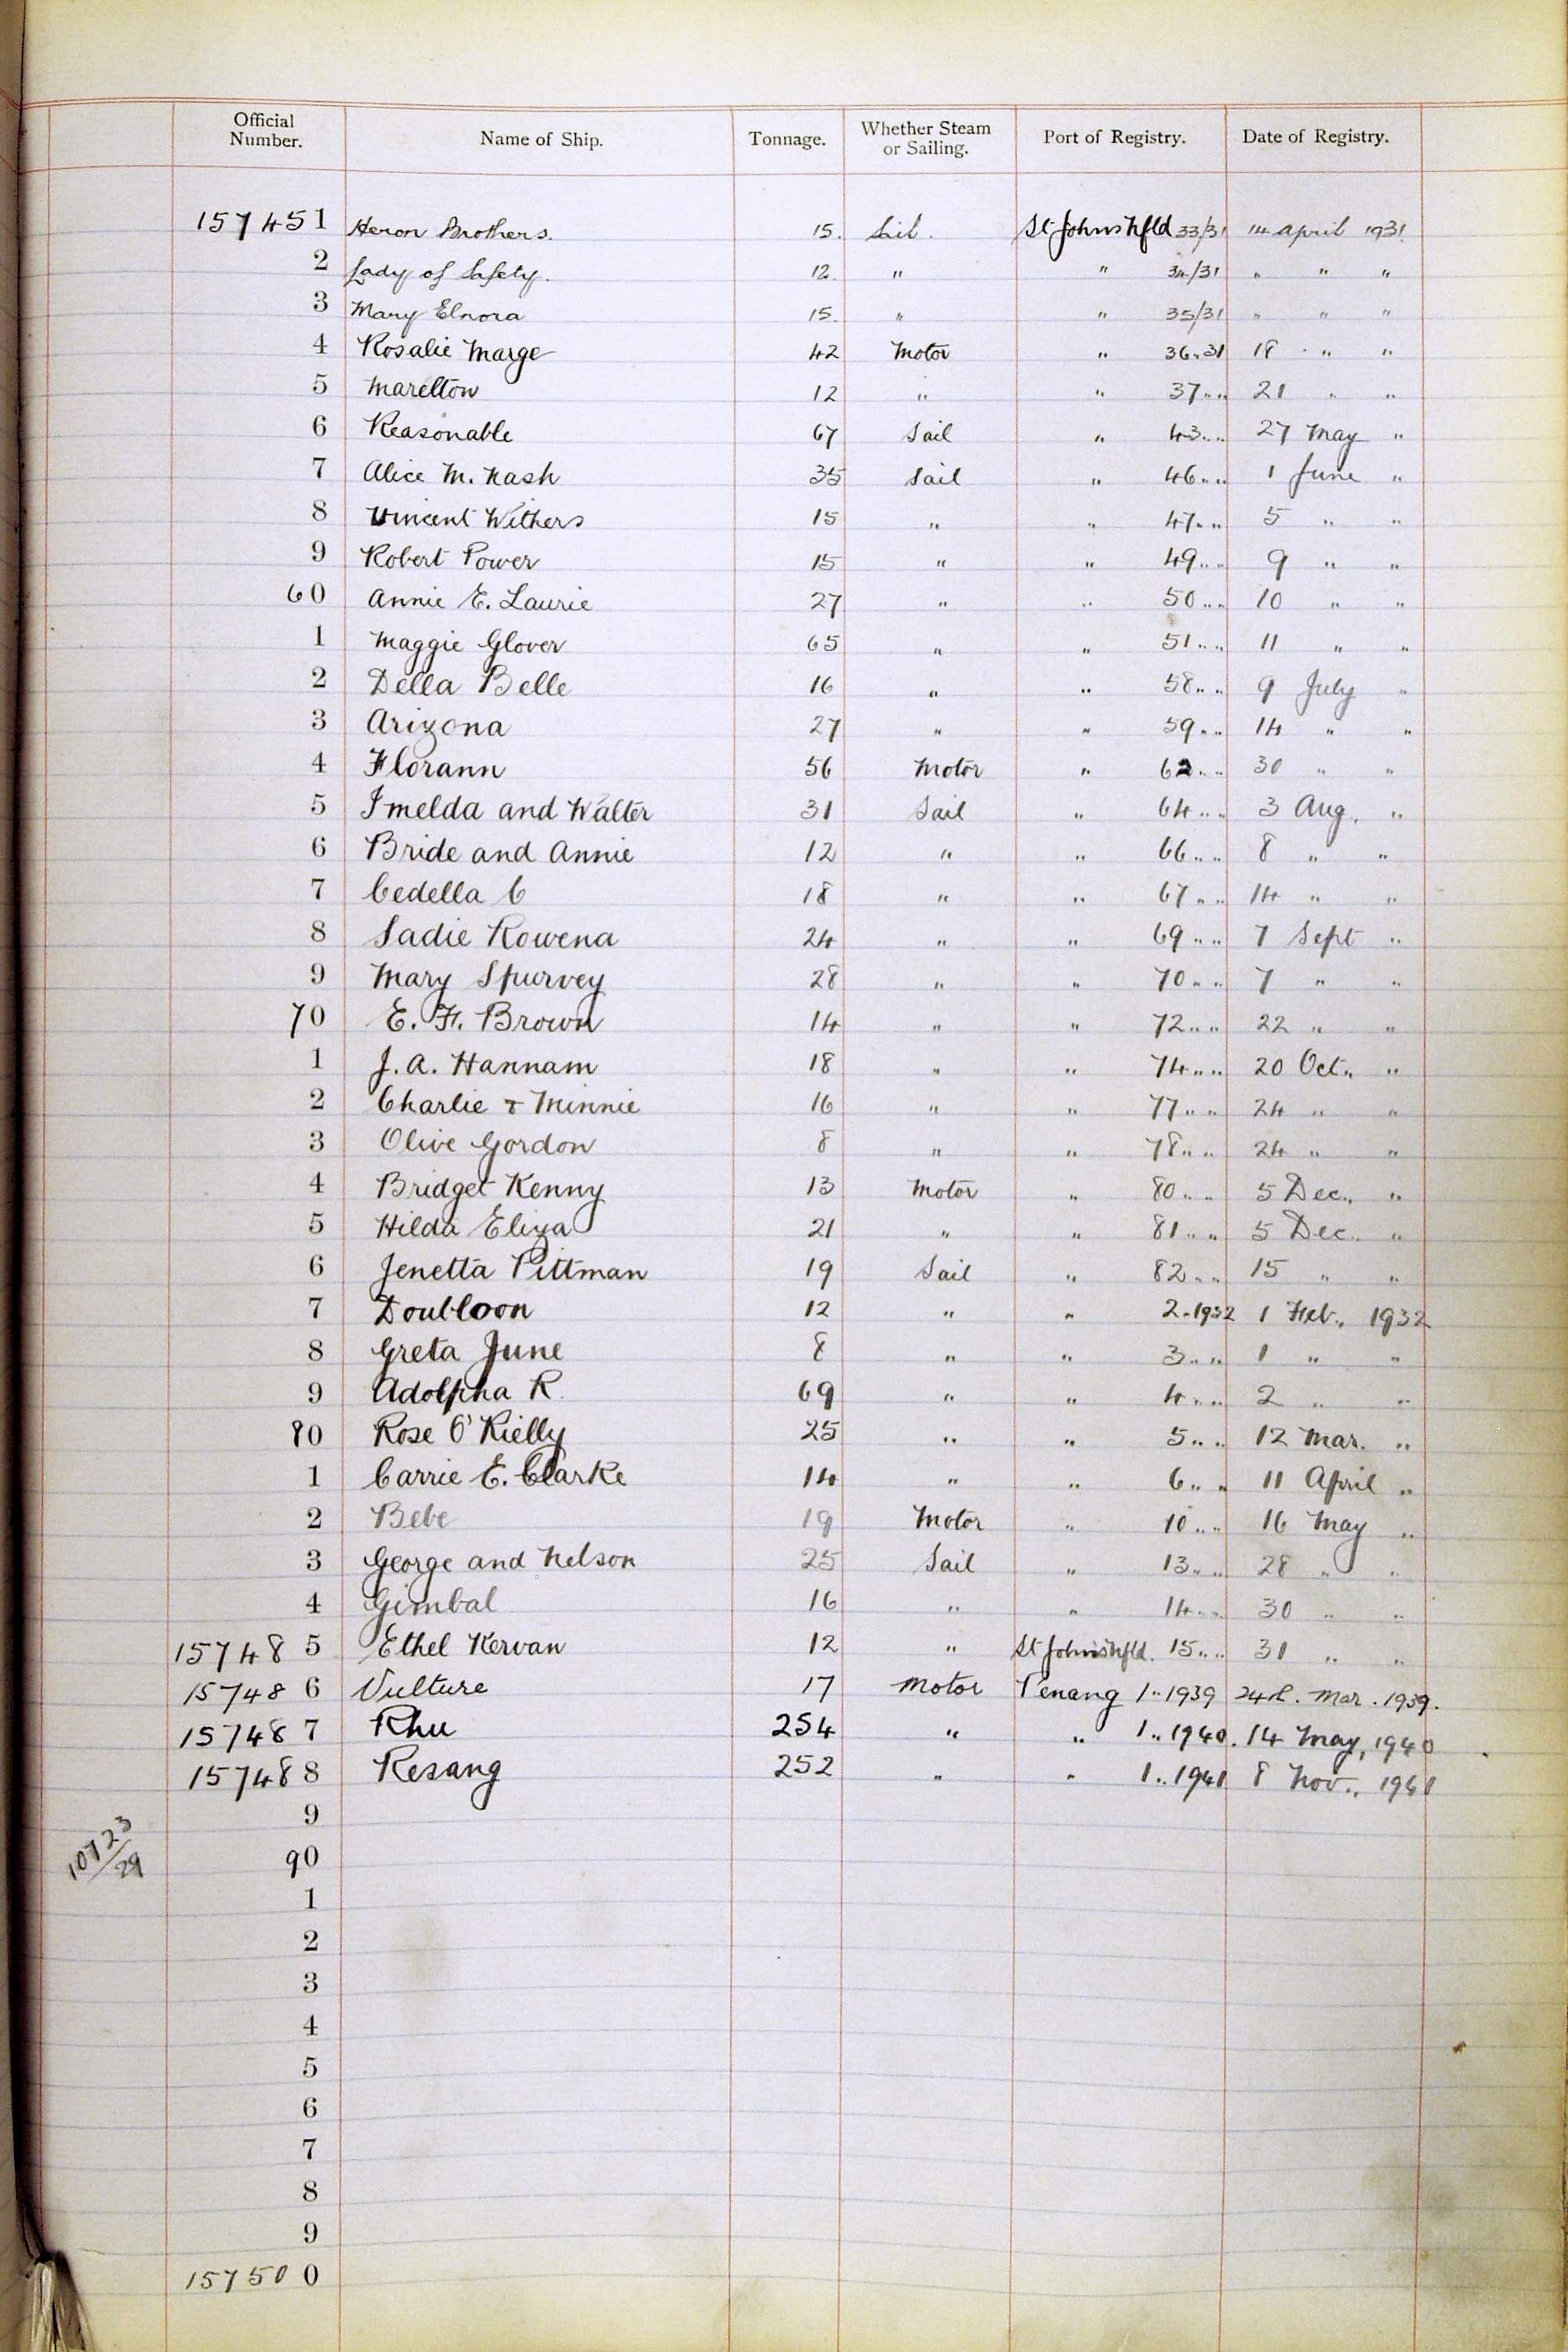 Official Number. Name of Ship. Tonnage. Whether Steam or Sailing. Port of Registry. Date of Registry.
157451 Heron Brothers. 15. Sail. St Johns Nfld 33/31 14 April 1931
2 Lady of Safety. 12. " " 34/31 " " "
3 Mary Elnora 15. " " 35/31 " " "
4 Rosalie Marge 42 Motor " 36.31 18 " "
5 Marelton 12 " " 37 " " 21 " "
6 Reasonable 67 Sail " 43 " " 27 May "
7 Alice M. Nash 35 Sail " 46 " " 1 June "
8 Vincent Withers 15 " " 47 " " 5 " "
9 Robert Power 15 " " 49 " " 9 " "
60 Annie E. Laurie 27 " " 50 " " 10 " "
1 Maggie Glover 65 " " 51 " " 11 " "
2 Della Belle 16 " " 58 " " 9 July "
3 Arizona 27 " " 59 " " 14 " "
4 Florann 56 Motor " 62 " " 30 " "
5 Imelda and Walter 31 Sail " 64 " " 3 Aug. "
6 Bride and Annie 12 " " 66 " " 8 " "
7 Cedella C 18 " " 67 " " 14 " "
8 Sadie Rowena 24 " " 69 " " 7 Sept "
9 Mary Spurvey 28 " " 70 " " 7 " "
70 E. F. Brown 14 " " 72 " " 22 " "
1 J. A. Hannam 18 " " 74 " " 20 Oct. "
2 Charlie & Minnie 16 " " 77 " " 24 " "
3 Olive Gordon 8 " " 78 " " 24 " "
4 Bridget Kenny 13 Motor " 80 " " 5 Dec. "
5 Hilda Eliza 21 " " 81 " " 5 Dec. "
6 Jenetta Pittman 19 Sail " 82 " " 15 " "
7 Doubloon 12 " " 2 - 1932 1 Feb., 1932
8 Greta June 8 " " 3 " " 1 " "
9 Adolpha R. 69 " " 4 " " 2 " "
80 Rose O'Rielly 25 " " 5 " " 12 Mar. "
1 Carrie E. Clarke 14 " " 6 " " 11 April "
2 Bebe 19 Motor " 10 " " 16 May "
3 George and Nelson 25 Sail " 13 " " 28 " "
4 Gimbal 16 " " 14 " " 30 " "
157485 Ethel Kervan 12 " St Johns Nfld. 15 " " 31 " "
157486 Vulture 17 Motor Penang 1 " 1939 24th. Mar. 1939.
157487 Rhu 254 " " 1 " 1940. 14 May, 1940
157488 Resang 252 " " 1 " 1941 8 Nov., 1941
9
10723/29
90
1
2
3
4
5
6
7
8
9
157500